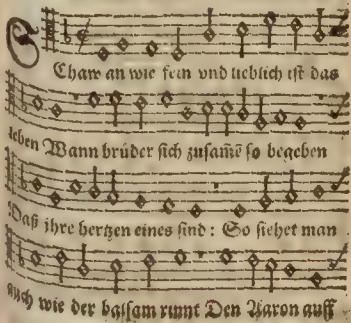 Schaw an wie fein vnd lieblich ist das
leben Wann brüder sich zusam̃e so begeben
Daß ihre hertzen eines sind : So siehet man
auch wie der balsam rinnt Den Aaron auff